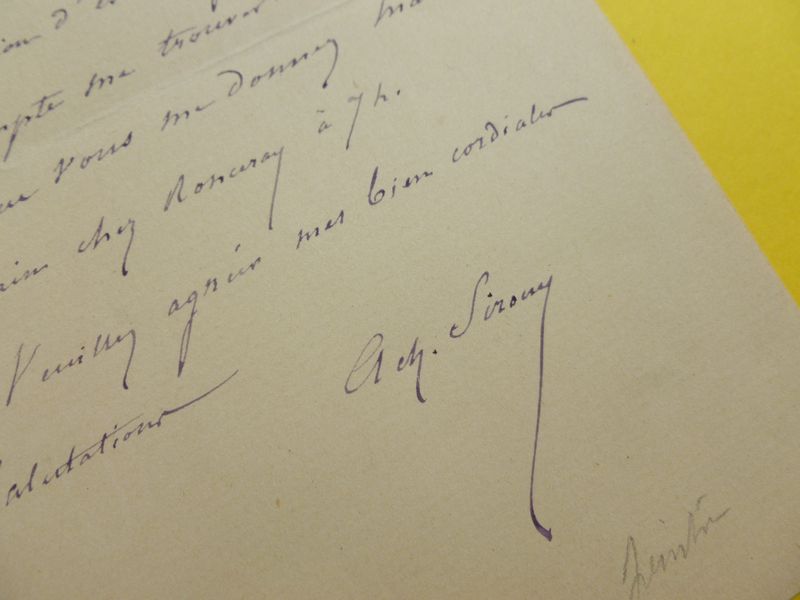 ion d'
mpte me trouver
ue vous me donnez
chez Ronceray à 7 h.
Veuillez agréer mes bien cordiales
salutations
Ach. Sirouy
peintre